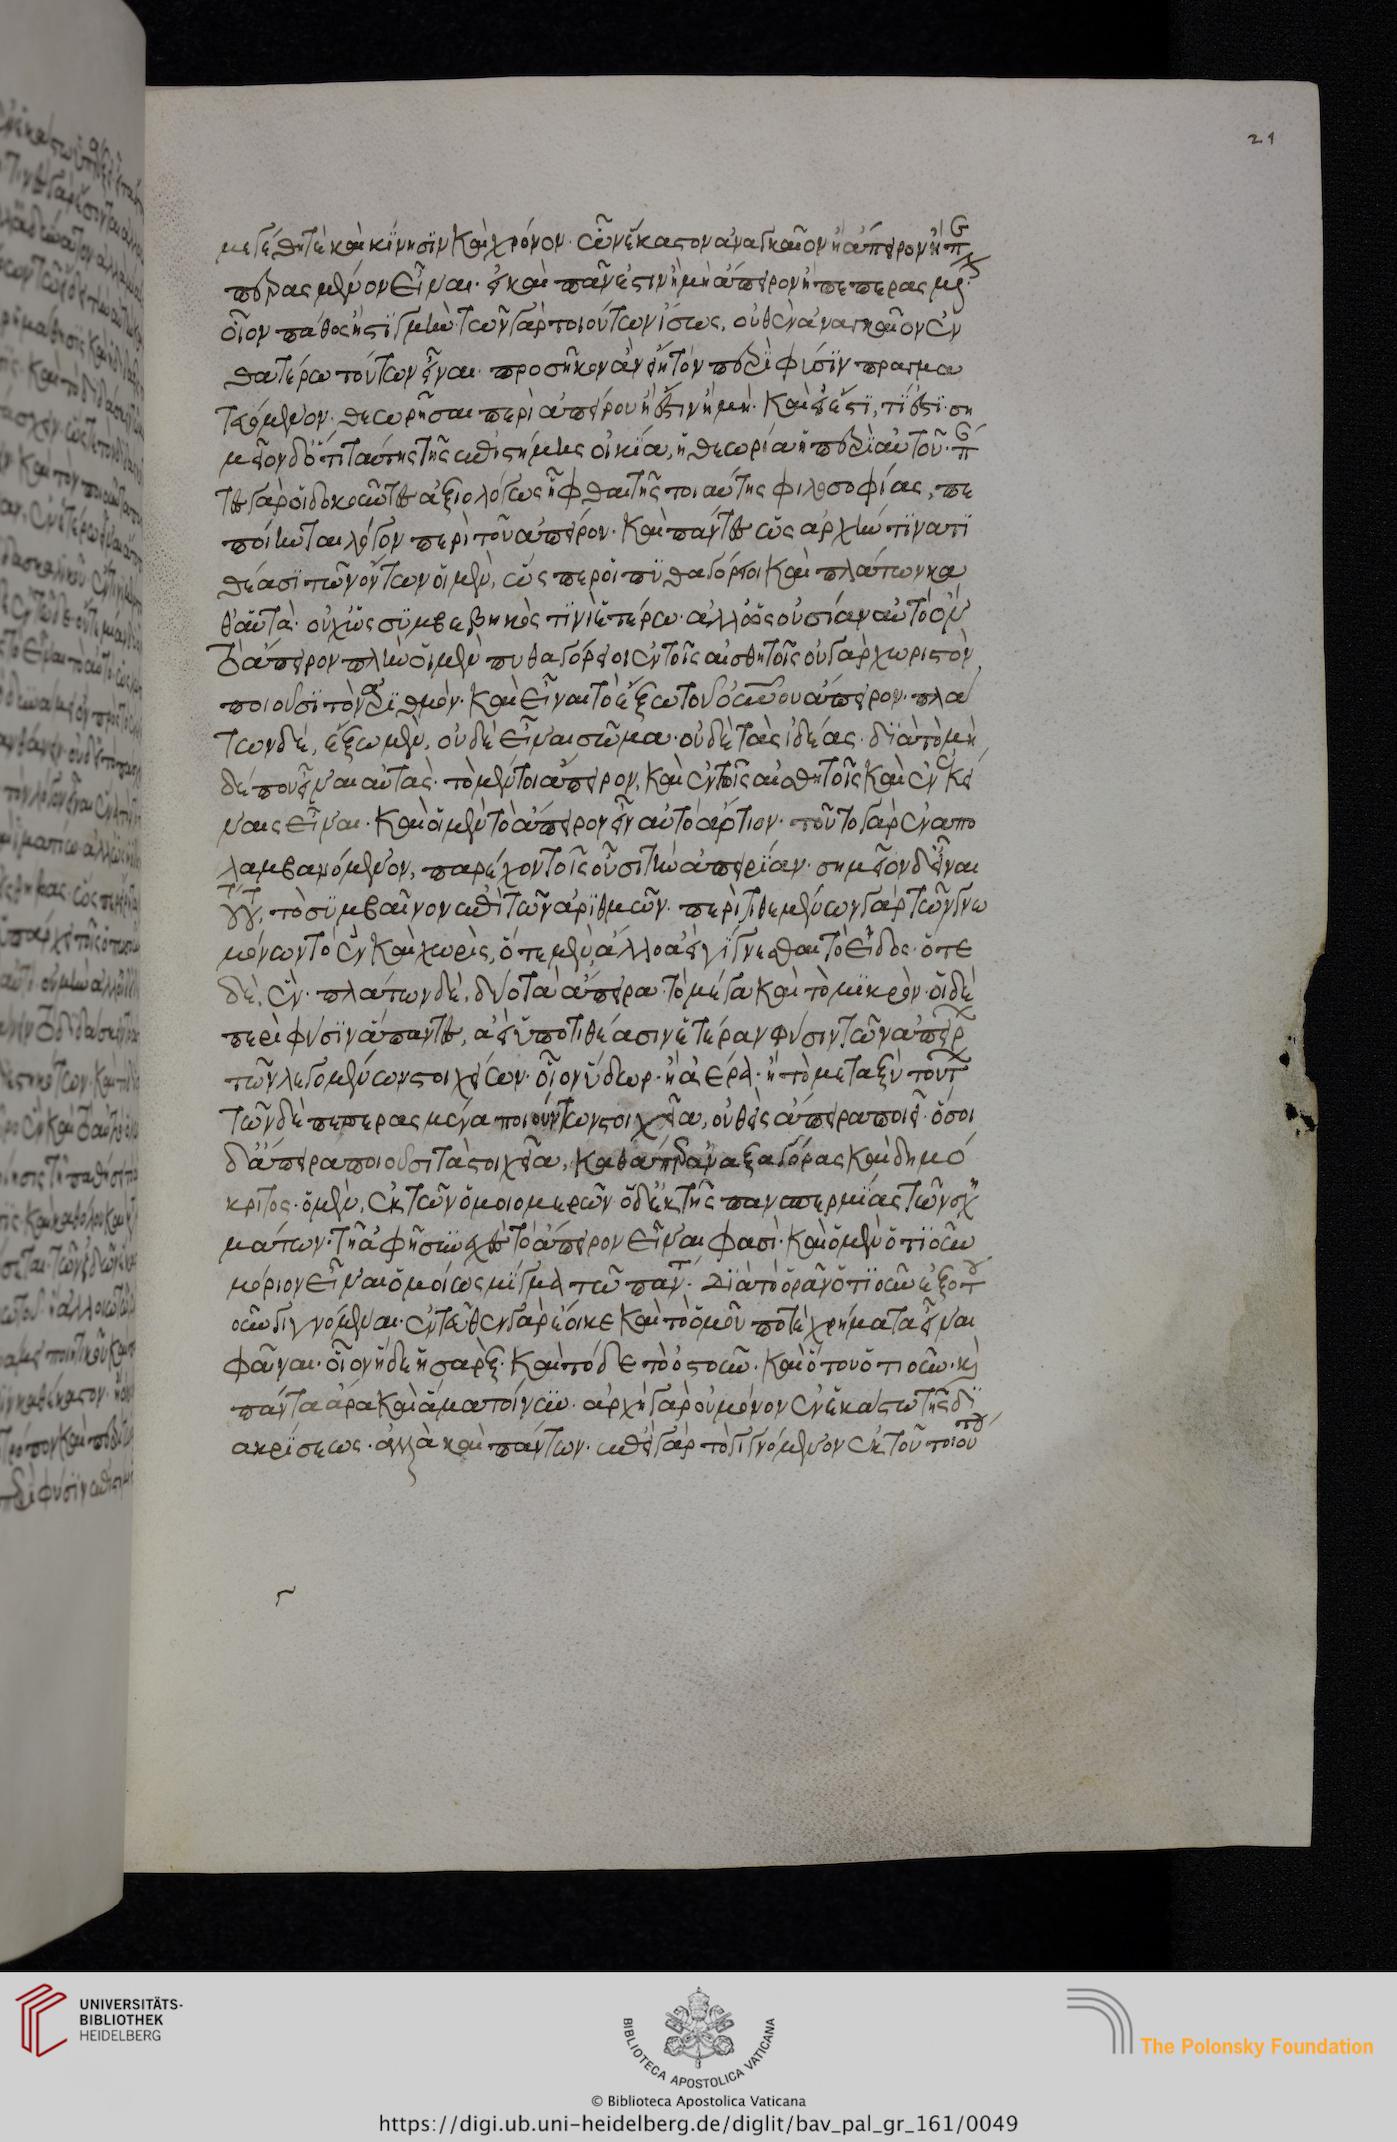 21
μεγέθη τὲ καὶ κίνησϊν καὶ χρόνον· ὧν ἕκαστον ἀναγκαῖον ἢ ἄπειρον ἢ π
περασμένον εἶναι· εἰ καὶ πᾶν ἐστιν ἢ μὴ ἄπειρον ἢ πεπερασμέ
οἷον πάθος ἢ στϊγμὴν τῶν γὰρ ποιούτων ἴσως, οὐθὲν ἀναγκαῖον ἐν
θατέρω τούτων εἶναι· προσῆκον ἂν εἴη τὸν περὶ φύσϊν πραγμα
τευόμενον· θεωρῆσαι περὶ ἀπείρου ἢ ἔστιν ἢ μή· καὶ εἰ ἔστϊ, τί ἐστϊ· ση
μεῖον δ' ὅτι ταύτης τῆς ἐπιστήμης οἰκεία, ἡ θεωρία ἡ περὶ αὐτοῦ· π
τες γὰρ οἱ δοκοῦντες ἀξιολόγως ἧφθαι τῆς τοιαύτης φιλοσοφίας, πε
ποίηνται λόγον περὶ τοῦ ἀπείρου· καὶ πάντες ὡς ἀρχήν τϊνα τϊ
θέασϊ τῶν ὄντων οἱ μὲν, ὥσπερ οἱ πϋθαγόρειοι καὶ πλάτων κα
θ' αὑτὸ· οὐχ ὡς συμβεβηκὸς τϊνὶ ἑτέρω· ἀλλ' ὡς οὐσίαν αὐτὸ ὂν
τὸ ἄπειρον πλὴν οἱ μὲν πυθαγόρειοι ἐν τοῖς αἰσθητοῖς οὐ γὰρ χωριστὸν
ποιοῦσϊ τὸν ἀρϊθμόν· καὶ εἶναι τὸ ἔξω τοῦ οὐρανοῦ ἄπειρον· πλά
των δὲ, ἔξω μὲν, οὐδὲν εἶναι σῶμα· οὐδὲ τὰς ἰδέας· δϊὰ τὸ μη
δέ που εἶναι αὐτάς· τὸ μέντοι ἄπειρον, καὶ ἐν τοῖς αἰσθητοῖς καὶ ἐν ἐκεί
ναις εἶναι· καὶ οἱ μὲν τὸ ἄπειρον εἶναι τὸ ἄρτιον· τοῦτο γὰρ ἐναπο
λαμβανόμενον, παρέχον τοῖς οὖσι τὴν ἀπειρίαν· σημεῖον δ' εἶναι
τούτου, τὸ συμβαῖνον ἐπὶ τῶν ἀρϊθμῶν· περὶτιθεμένων γὰρ τῶν γνω
μόνων τὸ ἓν καὶ χωρὶς, ὁτὲ μὲν ἄλλο ἀεὶ γίγνεσθαι τὸ εἶδος· ὁτὲ
δὲ, ἕν· πλάτων δὲ, δύο τὰ ἄπειρα· τὸ μέγα καὶ τὸ μϊκρόν· οἱ δὲ
περὶ φύσϊν ἅπαντες, ἀεὶ ὑποτιθέασιν ἑτέραν φύσιν τῶν ἀπείρ
τῶν λεγομένων στοιχείων· οἷον ὕδωρ· ἢ ἀέρα· ἢ τὸ μεταξὺ τούτ
τῶν δὲ πεπερασμένα ποιούντων στοιχεῖα, οὐθεὶς ἄπειρα ποιεῖ· ὅσοι
δ' ἄπειρα ποιοῦσι τὰ στοιχεῖα, καθάπερ ἀναξαγόρας καὶ δημό
κριτος· ὁ μὲν, ἐκ τῶν ὁμοιομερῶν ὁ δ' ἐκ τῆς πανσπερμίας τῶν σχη
μάτων· τῆ ἀφῆ συνεχὲς τὸ ἄπειρον εἶναι φασὶ· καὶ ὁ μὲν ὁτϊοῦν
μόριον εἶναι ὁμοίως μίγμα τῶ παντ· δϊὰ τὸ ὁρᾶν ὁτϊοῦν ἐξ ὁτ
οῦν γιγνόμεναι· ἐντεῦθεν γὰρ ἔοικε καὶ τὸ ὁμοῦ ποτὲ χρήματα εἶναι
φᾶναι· οἷον ἥδε ἡ σάρξ· καὶ τόδε τὸ ὀστοῦν· καὶ οὕτου ὁτιοῦν· κ
πάντα ἄρα καὶ ἅμα τοίνυν· ἀρχὴ γὰρ οὐ μόνον ἐν ἑκάστω τῆς δϊ
ακρίσεως· ἀλλὰ καὶ πάντων· ἐπεὶ γὰρ τὸ γιγνόμενον ἐκ τοῦ τοιού
UNIVERSITÄTS-
BIBLIOTHEK
HEIDELBERG
BIBLIOTECA APOSTOLICA VATICANA
© Biblioteca Apostolica Vaticana
The Polonsky Foundation
https://digi.ub.uni-heidelberg.de/diglit/bav_pal_gr_161/0049